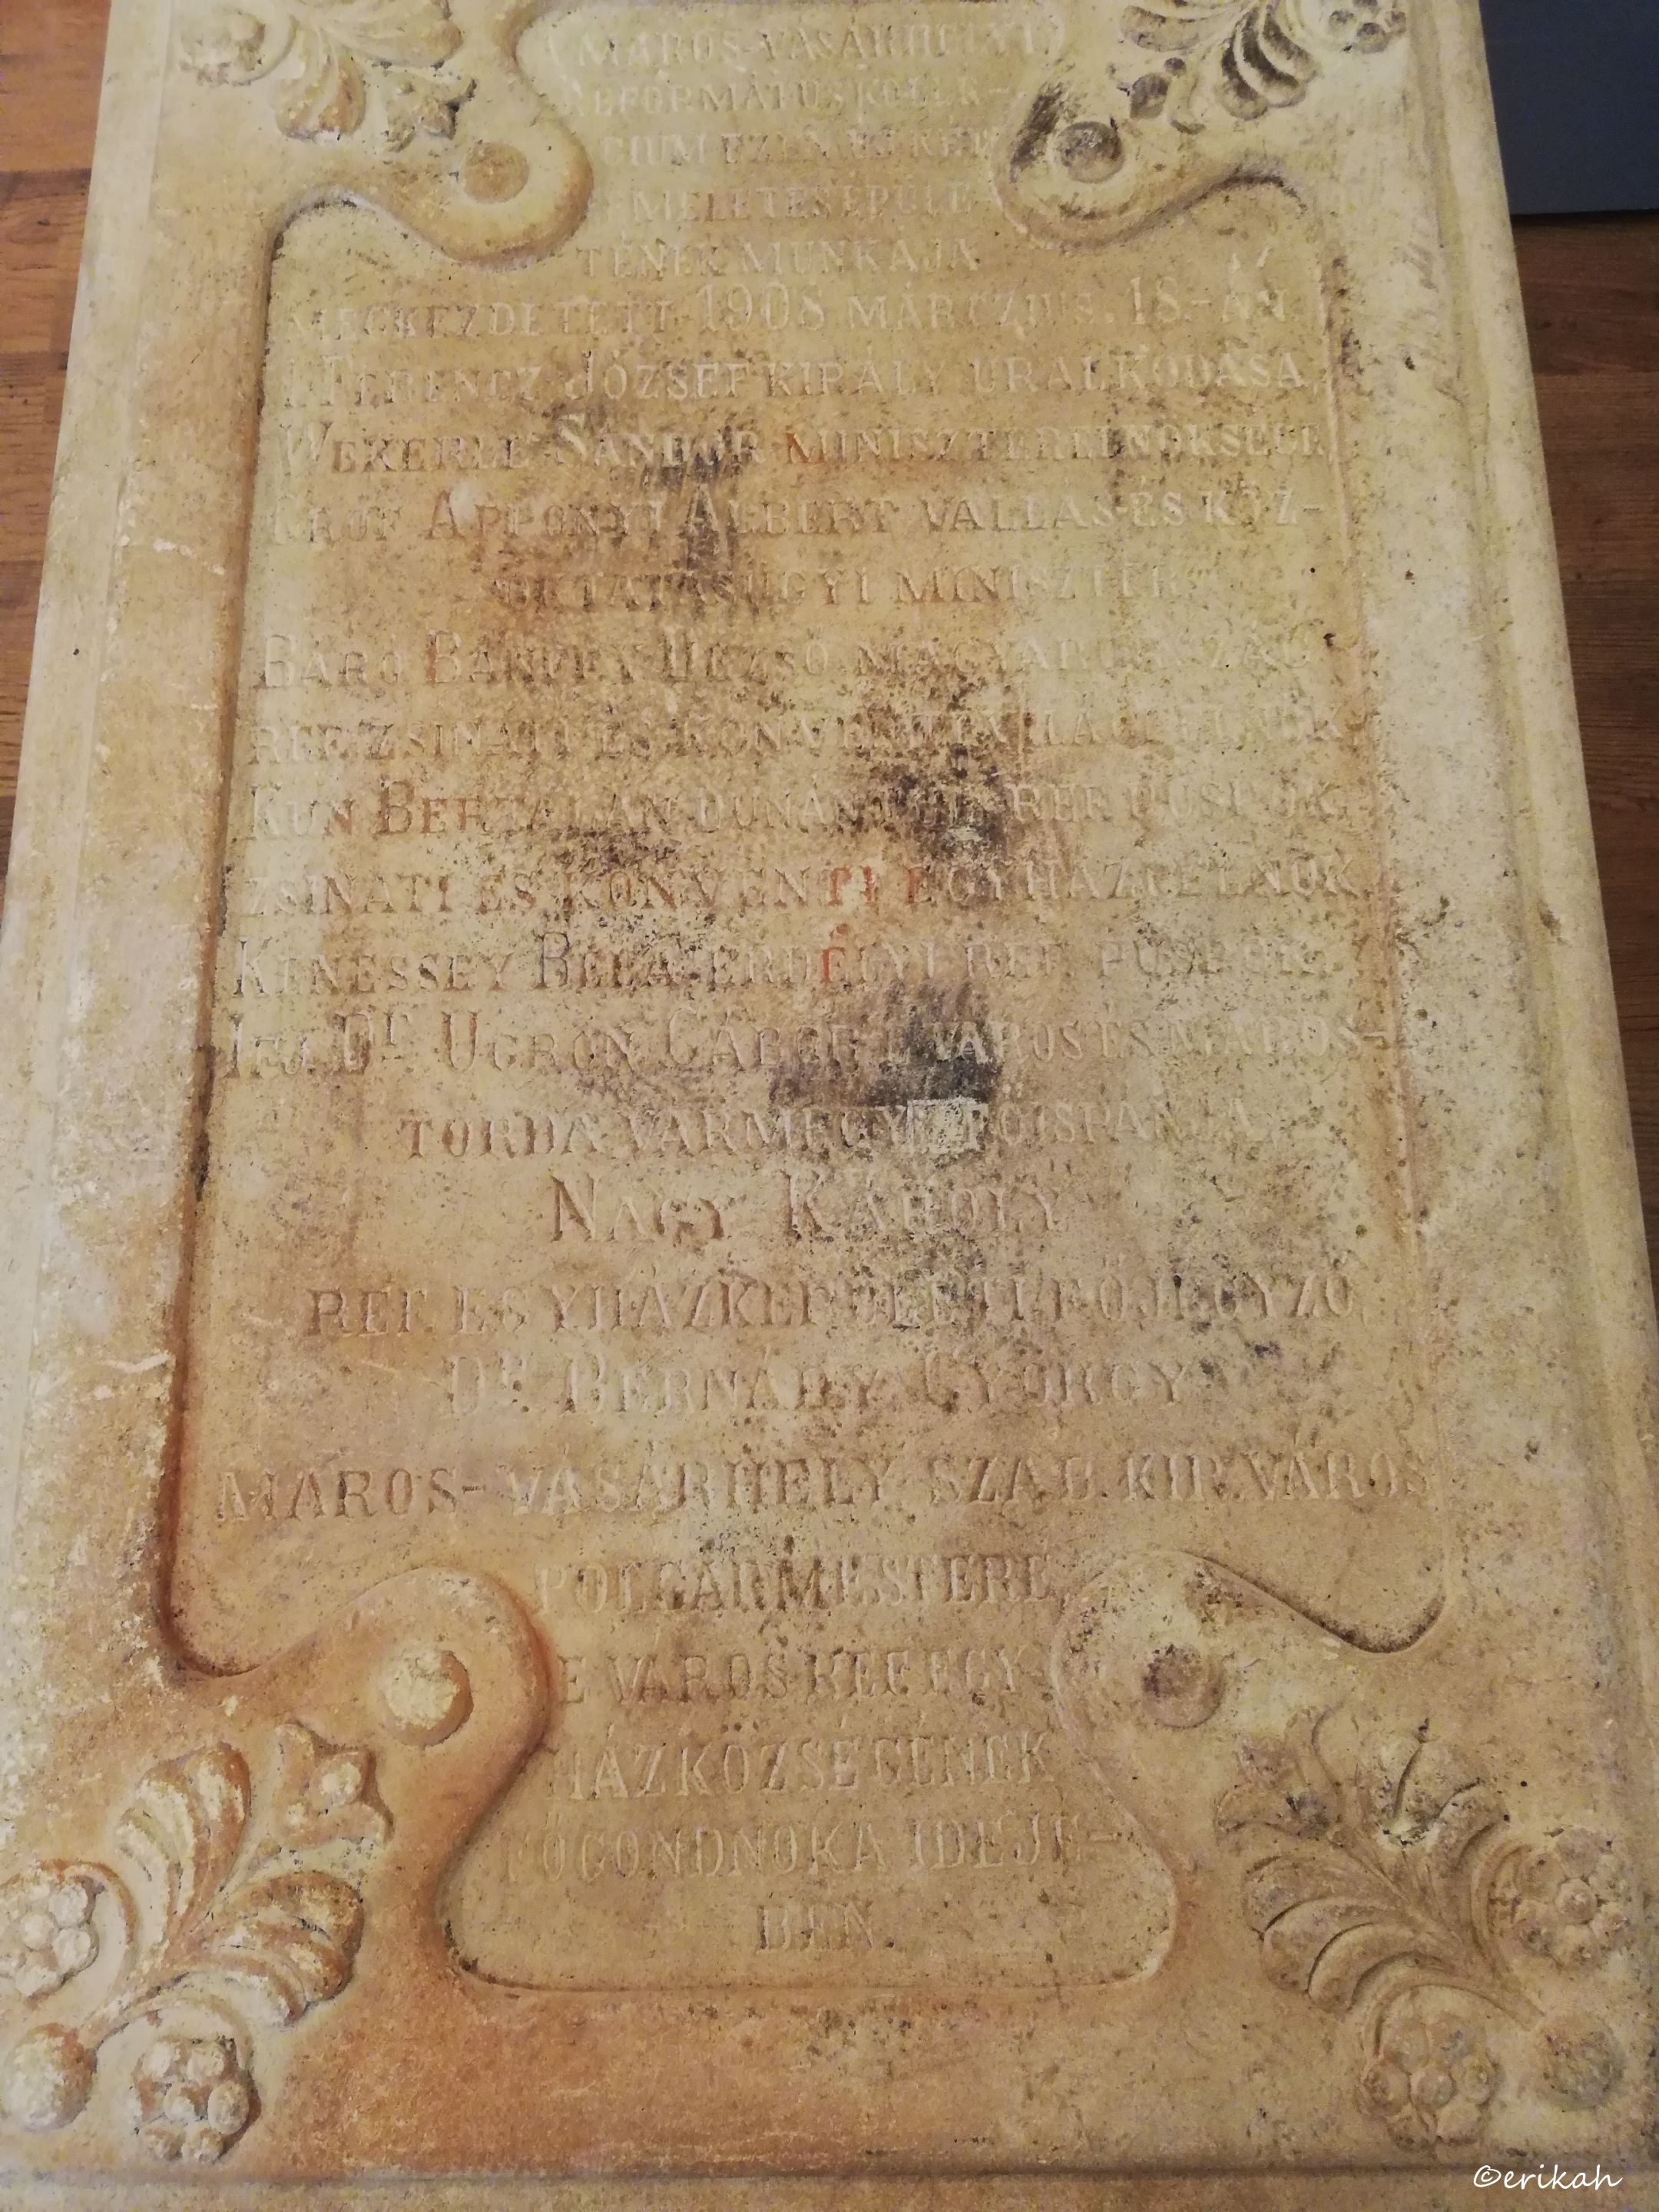 MAROS-VÁSÁRHELYI
REFORMÁTUS KOLLE-
GIUM EZEN KÉT
EMELETES ÉPÜLE-
TÉNEK MUNKÁJA
MEGKEZDETETT 1908 MÁRCZIUS. 18.-ÁN
I. FERENCZ JÓZSEF KIRÁLY URALKODÁSA,
WEKERLE SÁNDOR MINISZTERELNÖKSÉGE,
GRÓF APPONYI ALBERT VALLÁS-ÉS KÖZ-
OKTATÁSÜGYI MINISZTER
BÁRÓ BÁNFFY DEZSŐ MAGYARORSZÁG
REF. ZSINATI ÉS KONVENTI VILÁGI ELNÖK
KUN BERTALAN DUNÁNTÚLI REF. PÜSPÖK,
ZSINATI ÉS KONVENTI EGYHÁZI ELNÖK
KENESSEY BÉLA ERDÉLYI REF. PÜSPÖK,
IFJ. Dr. UGRON GÁBOR E VÁROS ÉS MAROS-
TORDA VÁRMEGYE FŐISPÁNJA,
NAGY KÁROLY
REF. EGYHÁZKERÜLETI FŐJEGYZŐ,
Dr. BERNÁDY GYÖRGY
MAROS-VÁSÁRHELY SZAB. KIR. VÁROS
POLGÁRMESTERE
E VÁROS REF. EGY-
HÁZKÖZSÉGÉNEK
FŐGONDNOKA IDEJÉ-
BEN.
©erikah